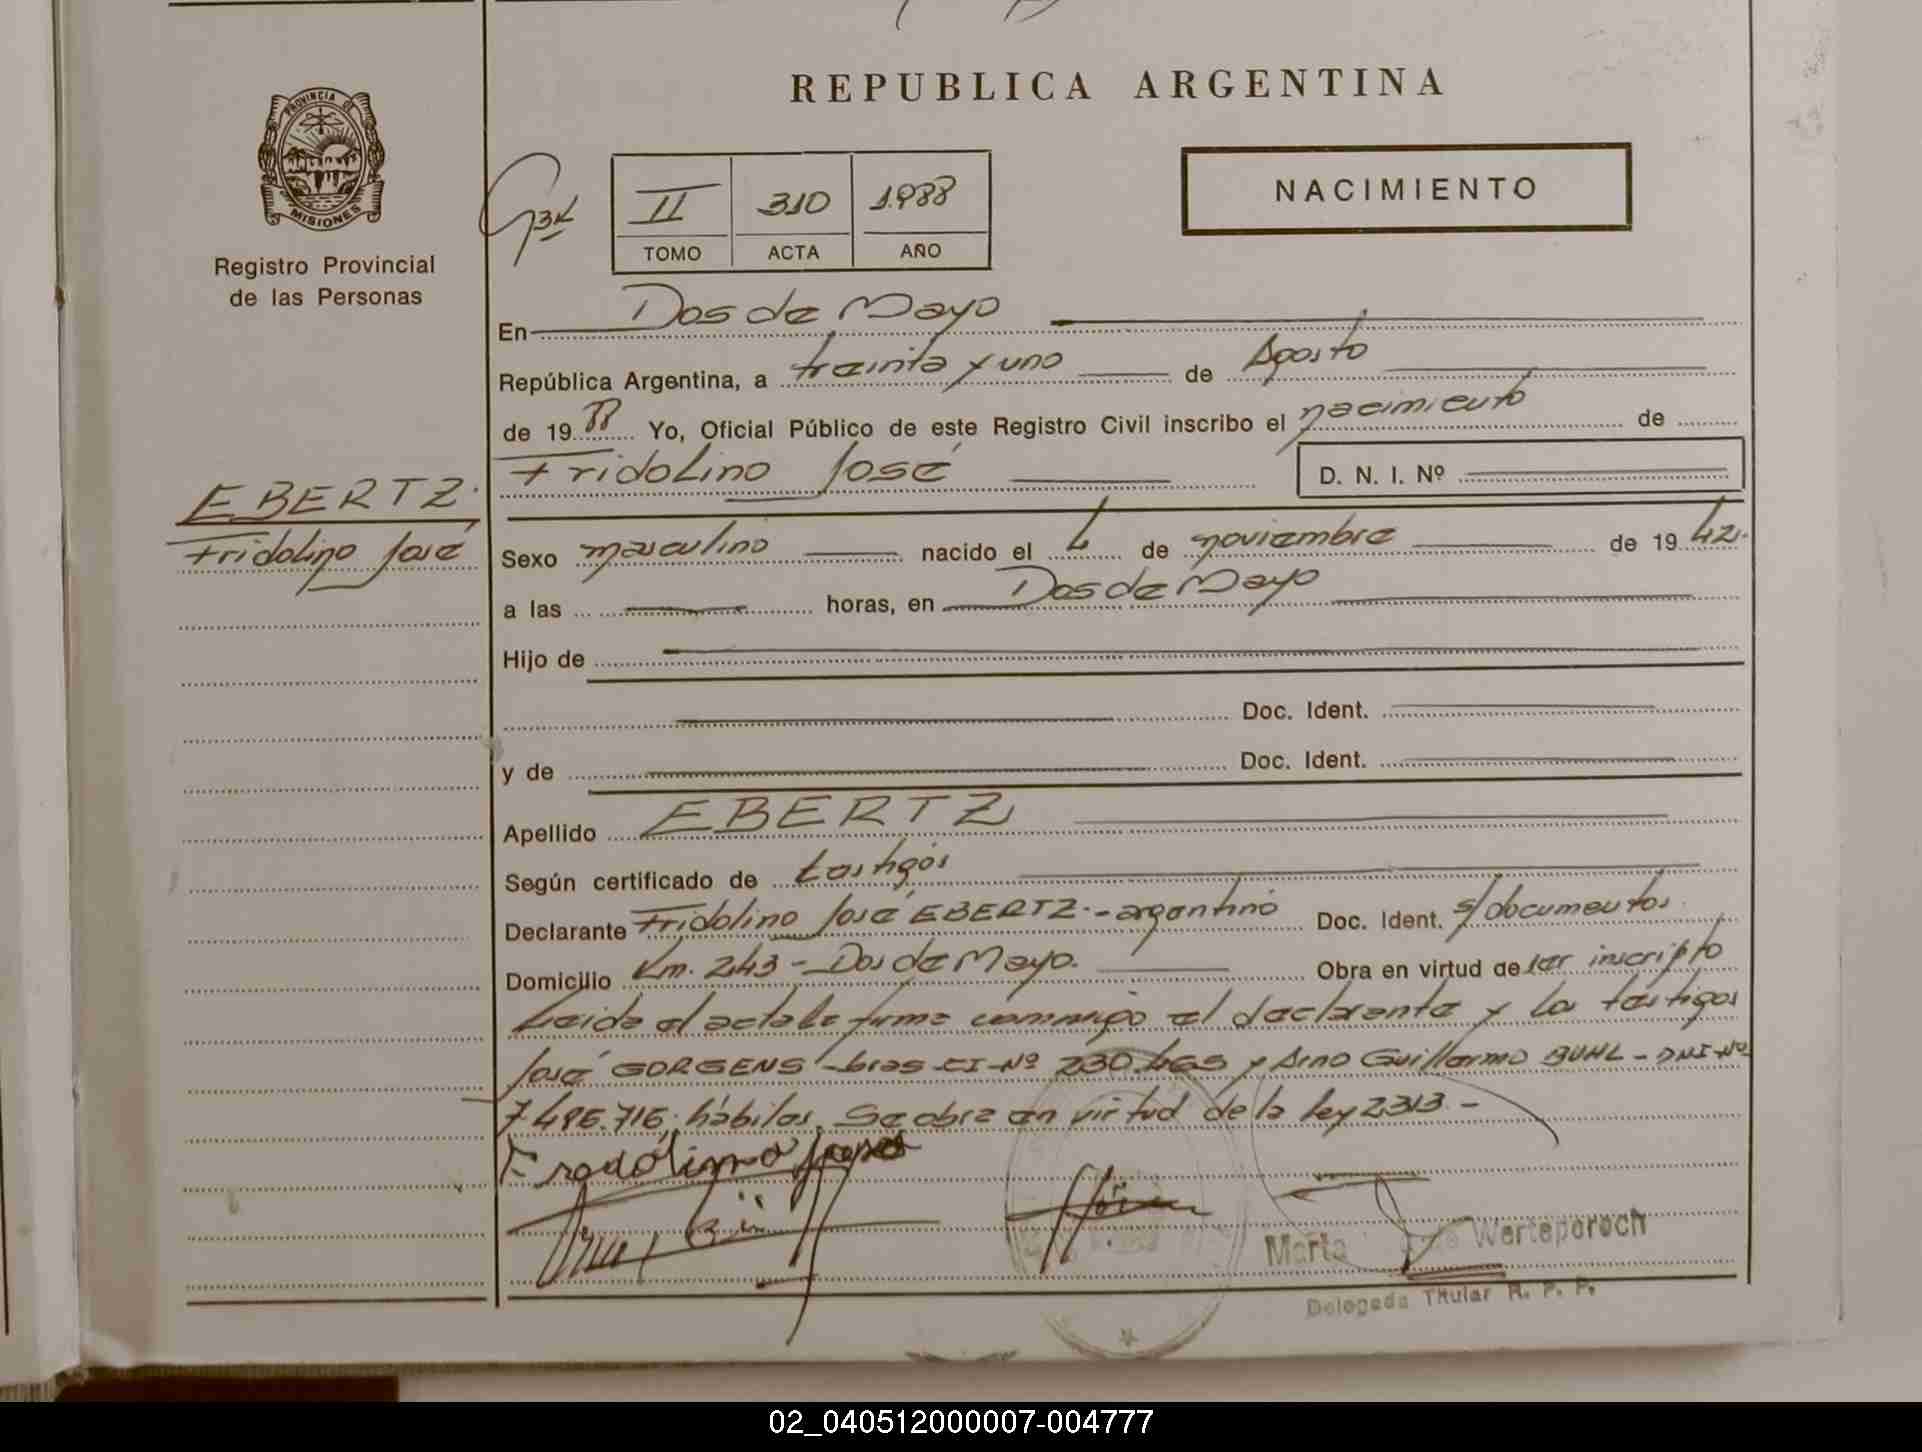 REPUBLICA ARGENTINA
PROVINCIA DE
MISIONES
Registro Provincial
de las Personas
II 310 1.988
TOMO ACTA AÑO
NACIMIENTO
En Dos de Mayo
República Argentina, a treinta y uno de Agosto
de 1988 Yo, Oficial Público de este Registro Civil inscribo el nacimiento de
Fridolino José D. N. I. Nº
EBERTZ.
Fridolino José
Sexo masculino nacido el 4 de noviembre de 1942.
a las horas, en Dos de Mayo
Hijo de
Doc. Ident.
y de Doc. Ident.
Apellido EBERTZ
Según certificado de testigos
Declarante Fridolino José EBERTZ.- argentino Doc. Ident. s/documentos.
Domicilio Km. 243 - Dos de Mayo. Obra en virtud de ser inscripto
Leida el acta la firma conmigo el declarante y los testigos
José GORGENS - bras - CI - Nº 230.465 y Arno Guillermo BUHL - DNI - Nº
7.485.716, hábiles. Se obra en virtud de la ley 2313.-
Marta de Werteporoch
Delegada Titular R. P. P.
02_040512000007-004777